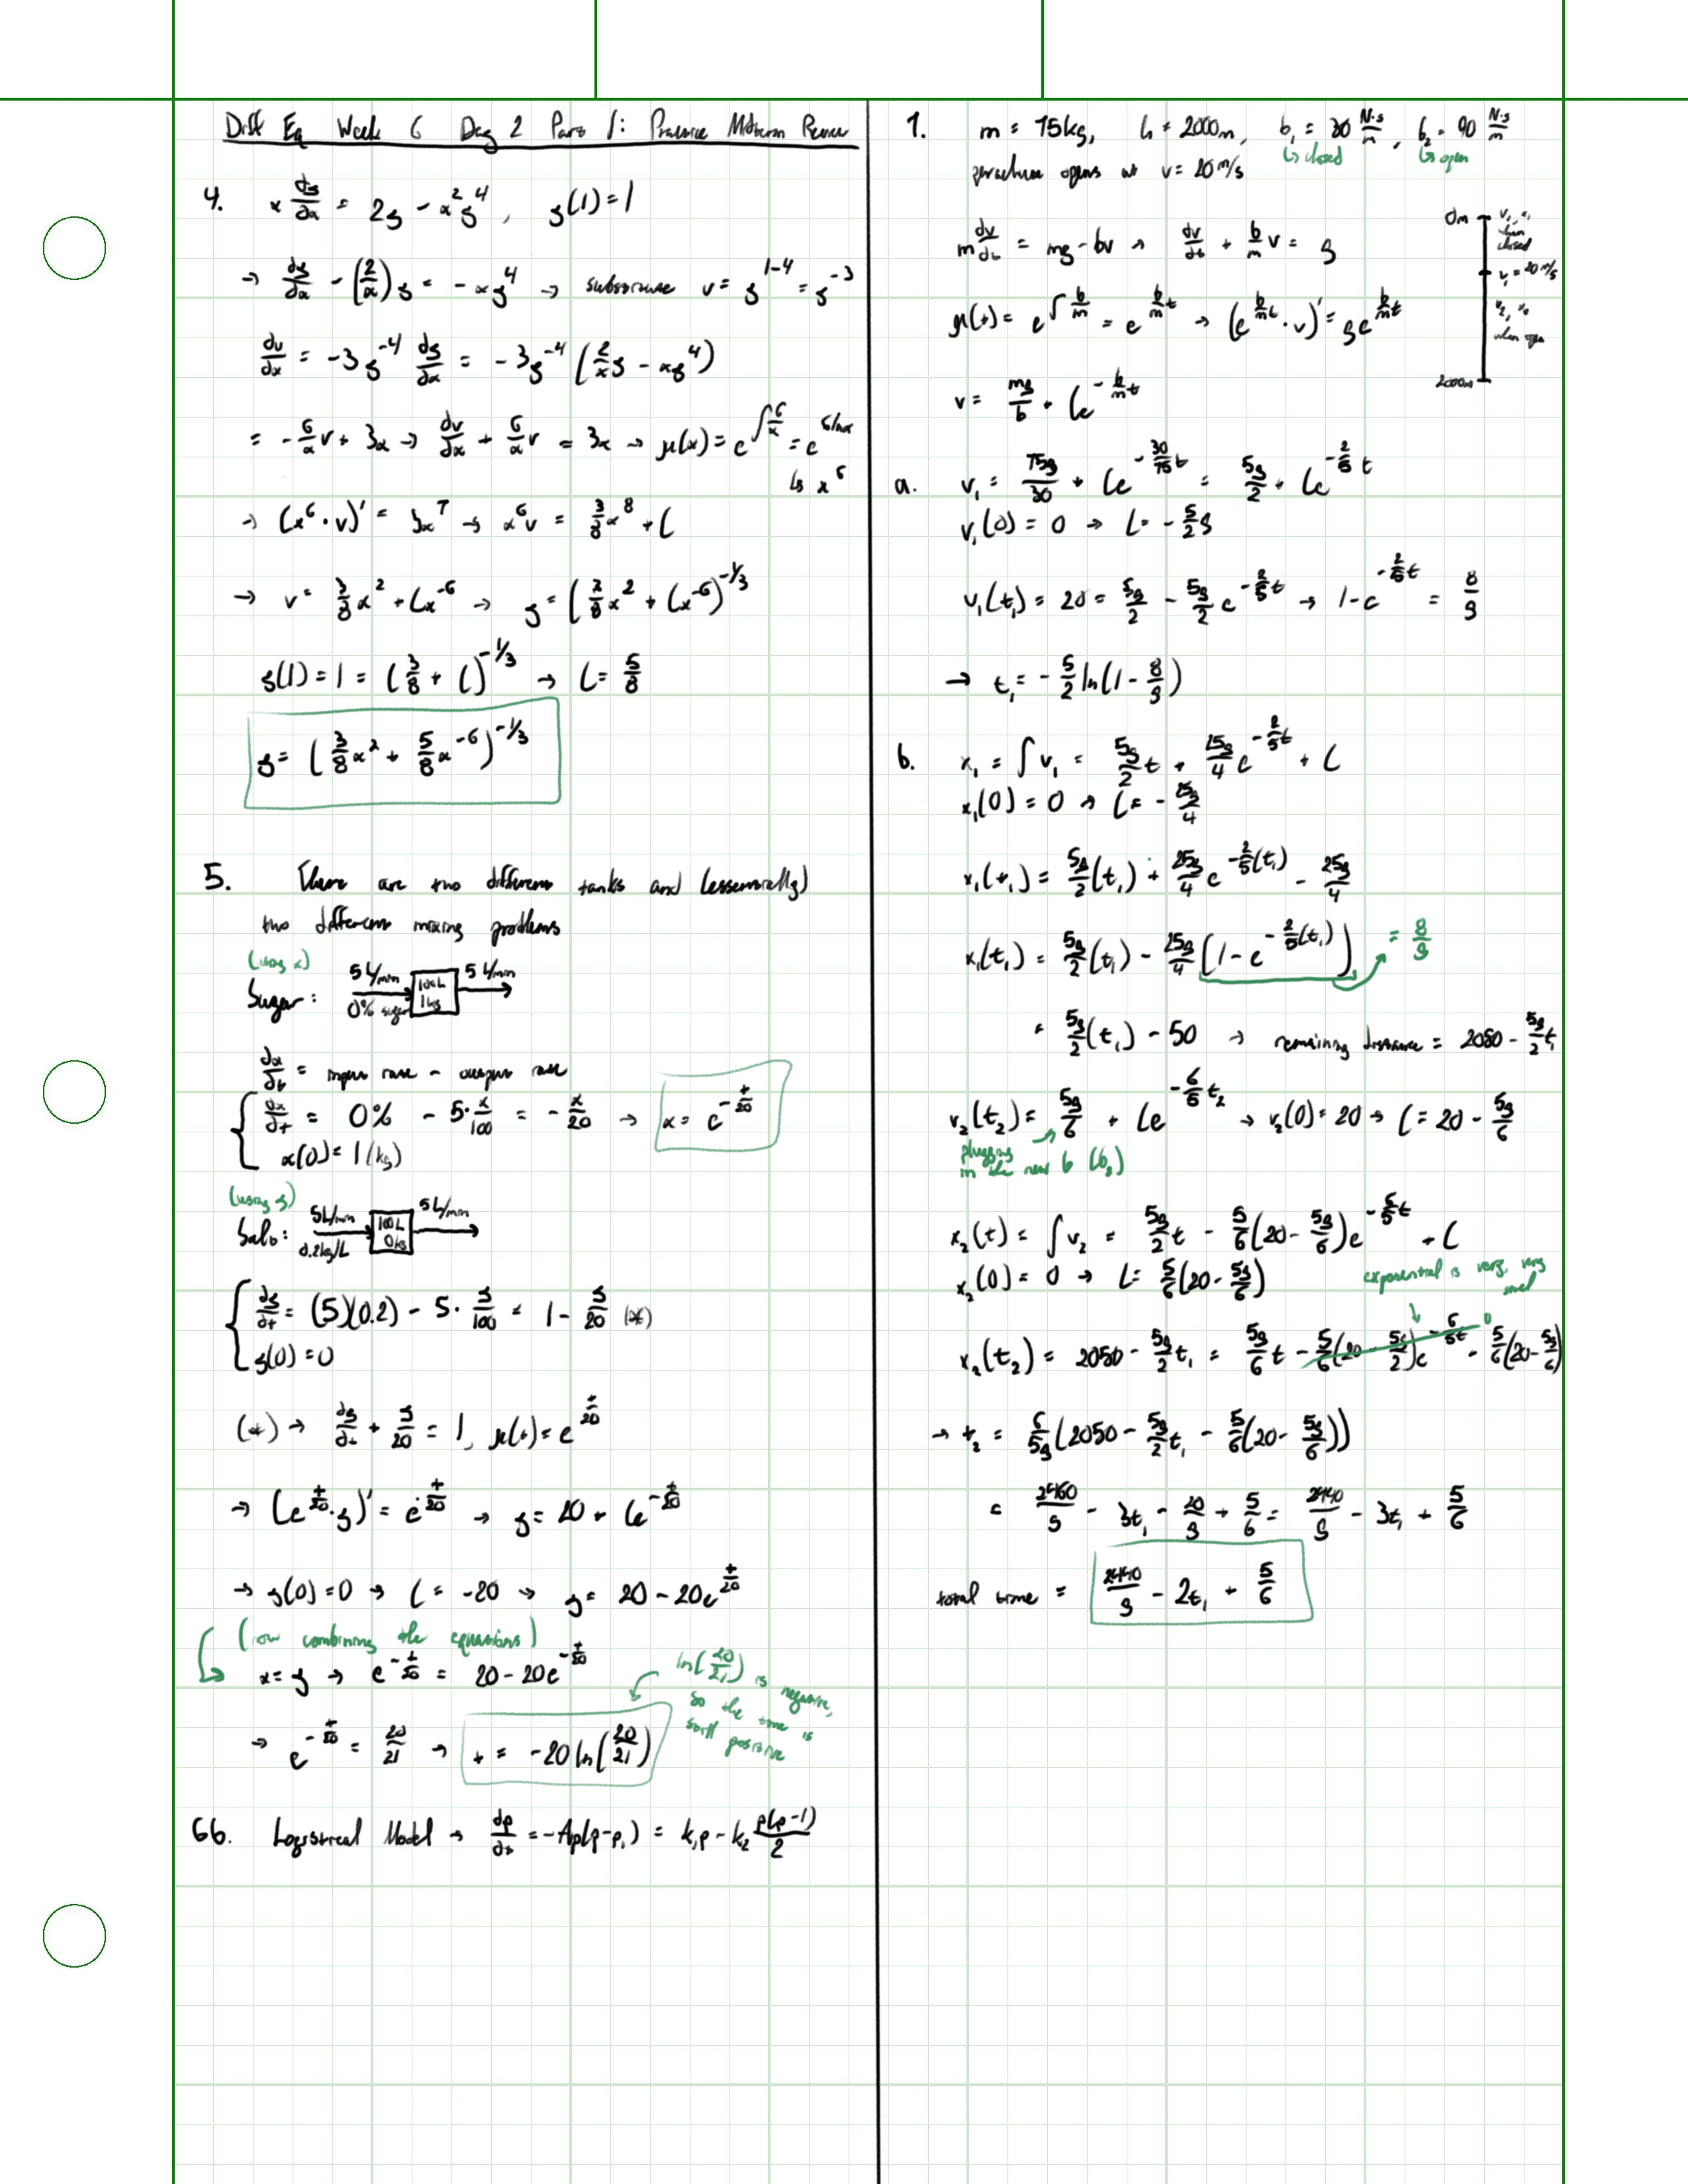 Diff Eq Week 6 Day 2 Part 1: Practice Midterm Review
4. x dy/dx = 2y - x²y⁴, y(1)=1
→ dy/dx - (2/x)y = -xy⁴ → substitute v = y^(1-4) = y^(-3)
dv/dx = -3y^(-4) dy/dx = -3y^(-4) (2/x y - xy⁴)
= -6/x v + 3x → dv/dx + 6/x v = 3x → μ(x) = e^(∫6/x) = e^(6lnx)
↳ x⁶
→ (x⁶·v)' = 3x⁷ → x⁶v = 3/8 x⁸ + C
→ v = 3/8 x² + Cx^(-6) → y = (3/8 x² + Cx^(-6))^(-1/3)
y(1) = 1 = (3/8 + C)^(-1/3) → C = 5/8
y = (3/8 x² + 5/8 x^(-6))^(-1/3)
5. There are two different tanks and (essentially)
two different mixing problems
(using x)
Sugar: 5 L/min 0% sugar 100L 1kg 5 L/min
dx/dt = input rate - output rate
dx/dt = 0% - 5·x/100 = -x/20 → x = e^(-t/20)
x(0) = 1 (kg)
(using y)
Salt: 5L/min 0.2kg/L 100L 0kg 5L/min
dy/dt = (5)(0.2) - 5·y/100 = 1 - y/20 (*)
y(0) = 0
(*) → dy/dt + y/20 = 1, μ(t) = e^(t/20)
→ (e^(t/20)·y)' = e^(t/20) → y = 20 + Ce^(-t/20)
→ y(0)=0 → C = -20 → y = 20 - 20e^(t/20)
(now combining the equations)
x = y → e^(-t/20) = 20 - 20e^(-t/20)
→ e^(-t/20) = 20/21 → t = -20 ln(20/21)
ln(20/21) is negative,
so the time is
still positive
6b. Logistical Model → dp/dt = -Ap(p-p₁) = k₁p - k₂ p(p-1)/2
7. m = 75kg, h = 2000m, b₁ = 30 N·s/m, b₂ = 90 N·s/m
↳ closed ↳ open
parachute opens at v = 20 m/s
m dv/dt = mg - bv → dv/dt + b/m v = g
μ(t) = e^(∫b/m) = e^(b/m t) → (e^(b/m t)·v)' = ge^(b/m t)
v = mg/b + Ce^(-b/m t)
0m v₁, x₁
when
closed
v₁ = 20 m/s
v₂, x₂
when open
2000m
a. v₁ = 75g/30 + Ce^(-30/75 t) = 5g/2 + Ce^(-2/5 t)
v₁(0) = 0 → C = -5/2 g
v₁(t₁) = 20 = 5g/2 - 5g/2 e^(-2/5 t) → 1 - e^(-2/5 t) = 8/g
→ t₁ = -5/2 ln(1 - 8/g)
b. x₁ = ∫v₁ = 5g/2 t + 25g/4 e^(-2/5 t) + C
x₁(0) = 0 → C = -25g/4
x₁(t₁) = 5g/2 (t₁) + 25g/4 e^(-2/5(t₁)) - 25g/4
x₁(t₁) = 5g/2 (t₁) - 25g/4 (1 - e^(-2/5(t₁))) = 8/g
= 5g/2 (t₁) - 50 → remaining distance = 2050 - 5g/2 t₁
v₂(t₂) = 5g/6 + Ce^(-6/5 t₂) → v₂(0) = 20 → C = 20 - 5g/6
plugging
in the new b (b₂)
x₂(t) = ∫v₂ = 5g/2 t - 5/6(20 - 5g/6)e^(-6/5 t) + C
x₂(0) = 0 → C = 5/6(20 - 5g/6)
exponential is very, very
small
x₂(t₂) = 2050 - 5g/2 t₁ = 5g/6 t - 5/6(20 - 5g/2)e^(-6/5 t) 0 + 5/6(20 - 5g/6)
→ t₂ = 6/5g (2050 - 5g/2 t₁ - 5/6(20 - 5g/6))
= 2460/g - 3t₁ - 20/g + 5/6 = 2440/g - 3t₁ + 5/6
total time = 2440/g - 2t₁ + 5/6